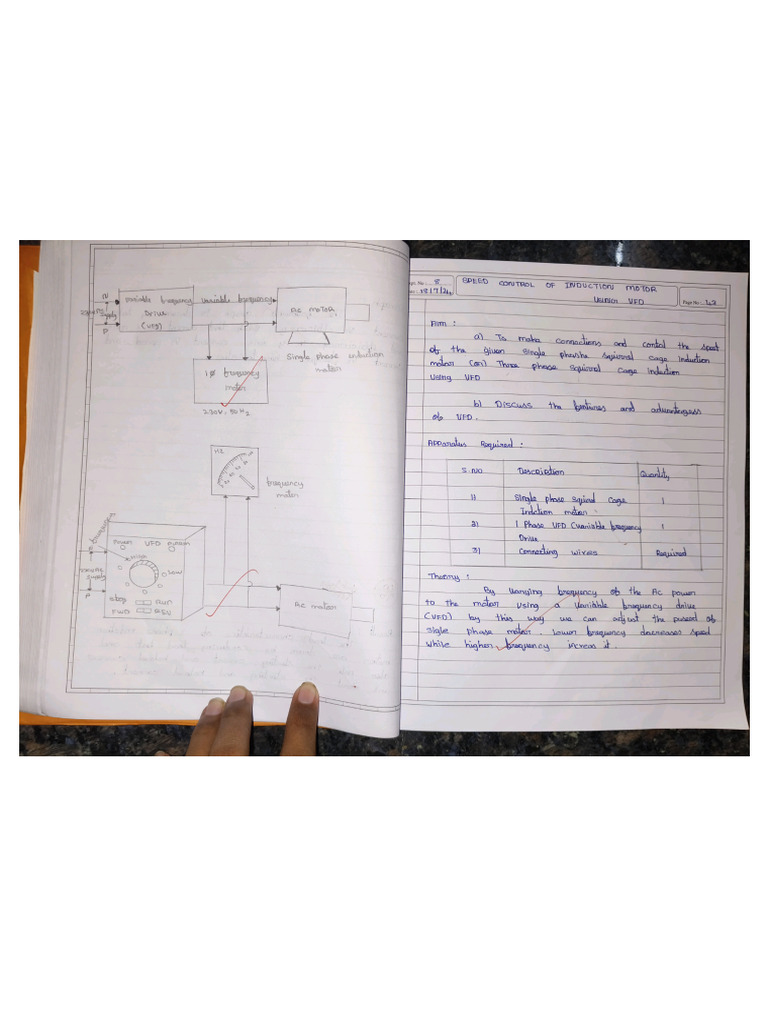 N
variable frequency
Drive
(VFD)
variable frequency
AC MOTOR
supply
P
Single phase induction
motor
1Ø frequency
meter
230V, 50Hz
HZ
frequency
meter
Power
VFD
High
Low
supply
P
stop
RUN
FWD
REV
AC motor
Expt. No : 8
SPEED CONTROL OF INDUCTION MOTOR
USING VFD
Page No :
Aim :
a) To make connections and control the speed
of the given single phashe squirval cage induction
motor (or) Three phase squirval cage induction
using VFD
b) Discuss the features and advanteages
of VFD.
Apparatus Required :
S.NO Description Quantity
1) Single phase squirval cage 1
Indction motor
2) 1 Phase VFD (variable frequency 1
Drive
3) Connecting wires Required
Theory :
By vanging frequency of the AC power
to the motor using a variable frequency drive
(VFD) by this way we can adjust the pseed of
sigle phase motor. Lower frequency decreases speed
while higher frequency increas it.